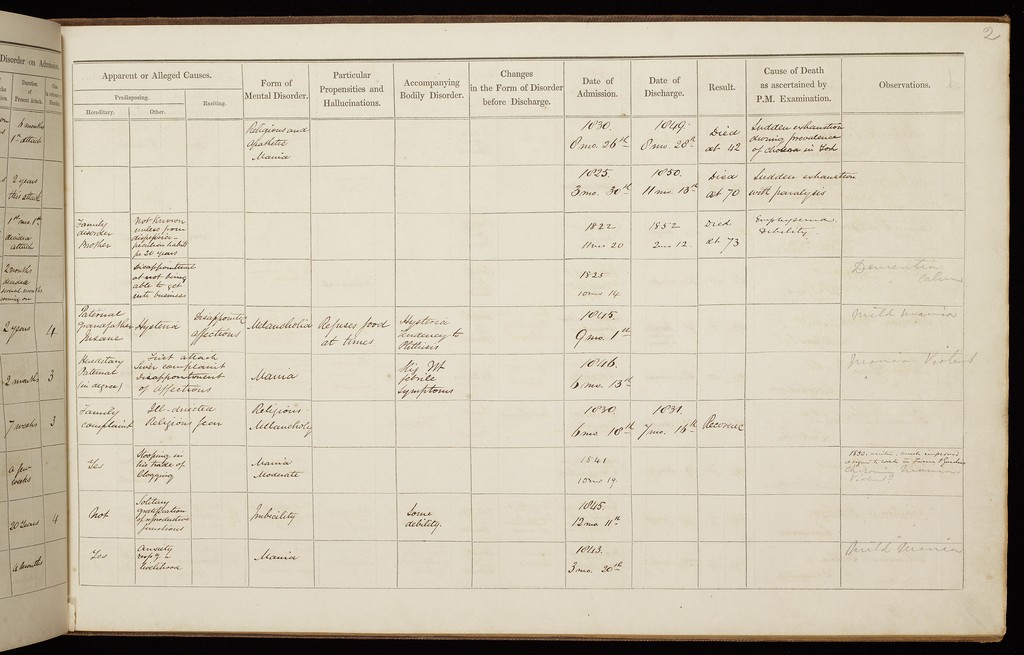 2
Disorder on Admission.
Duration of Present Attack.
Apparent or Alleged Causes.
Predisposing.
Exciting.
Hereditary.
Other.
Form of Mental Disorder.
Particular Propensities and Hallucinations.
Accompanying Bodily Disorder.
Changes in the Form of Disorder before Discharge.
Date of Admission.
Date of Discharge.
Result.
Cause of Death as ascertained by P.M. Examination.
Observations.
1st attack
Religious and
apathetic
Mania
1830.
8 mo. 26th
1849.
8 mo. 28th
Died
at 42
Sudden exhaustion
during prevalence
of cholera in York
2 years
this attack
1825.
3 mo. 30th
1850.
11 mo. 13th
Died
at 70
Sudden exhaustion
with paralysis
attack
Family
disorder
Brother
Not known
unless from
habits
for 20 years
1822
11 mo 20
1852
2 mo 12
Died
at 73
Emphysema
Debility
2 months
Disappointment
at not being
able to get
into business
1825
10 mo 14
Dementia
Calm
2 years
4
Paternal
Grandfather
Insane
Hysteria
Disappointed
affections
Melancholia
Refuses food
at times
Hysteria
Tendency to
Phthisis
1845.
9 mo. 1st
Mild Mania
2 months
3
Hereditary
Paternal
(in degree)
First attack
liver complaint
Disappointment
of Affections
Mania
febrile
Symptoms
1846.
6 mo. 13th
Mania Violent
7 weeks
3
Family
complaint
Ill-directed
Religious fear
Religious
Melancholy
1830.
6 mo 18th
1831.
7 mo. 16th
a few
weeks
Yes
Stooping in
his trade of
Clogging
Mania
Moderate
1841.
10 mo 19.
Chronic Mania
Violent?
20 Years
4
Not
Solitary
gratification
of reproductive
functions
Imbecility
Some
debility.
1845.
12 mo 11th
months
Yes
Anxiety
livelihood
Mania
1843.
3 mo. 20th
Mild Mania